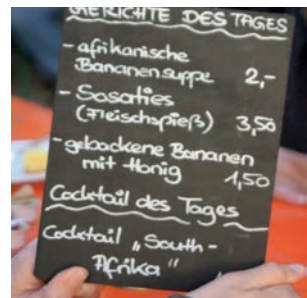 GERICHTE DES TAGES
- afrikanische
Bananensuppe 2,-
- Sosaties
(Fleischspieß) 3,50
- gebackene Bananen
mit Honig 1,50
Cocktail des Tages
Cocktail „South -
Afrika"